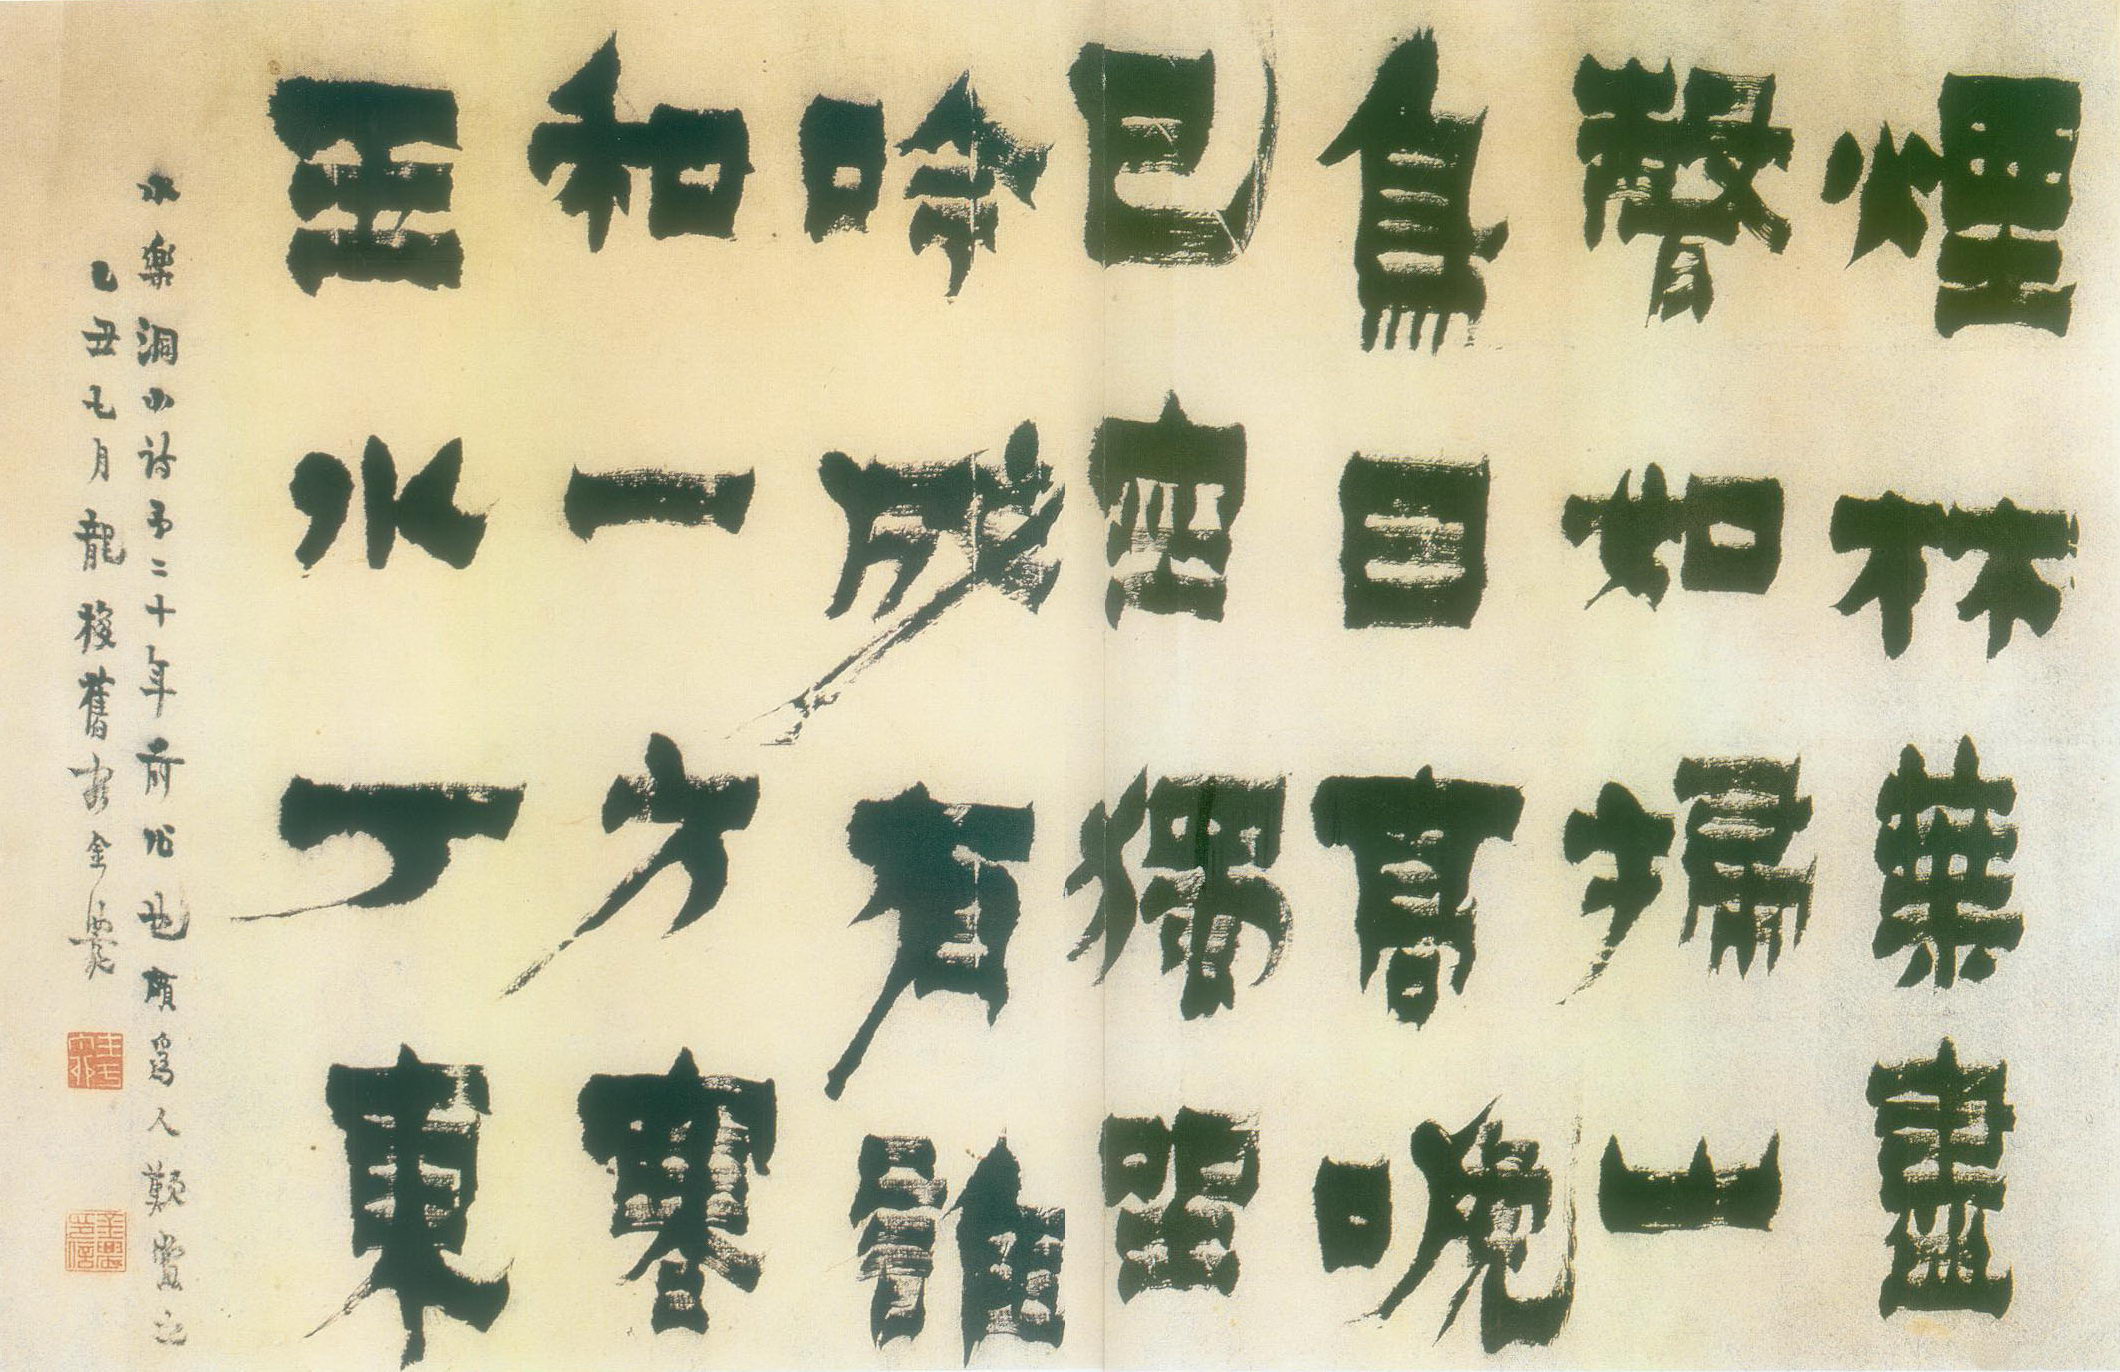 煙林葉盡
聲如掃山
鳥目高晚
已空獨坐
吟成有誰
和一方寒
玉水丁東
水樂洞小詩予二十年前作也頗爲人歎賞之
乙丑七月龍梭舊客金農
金農印信